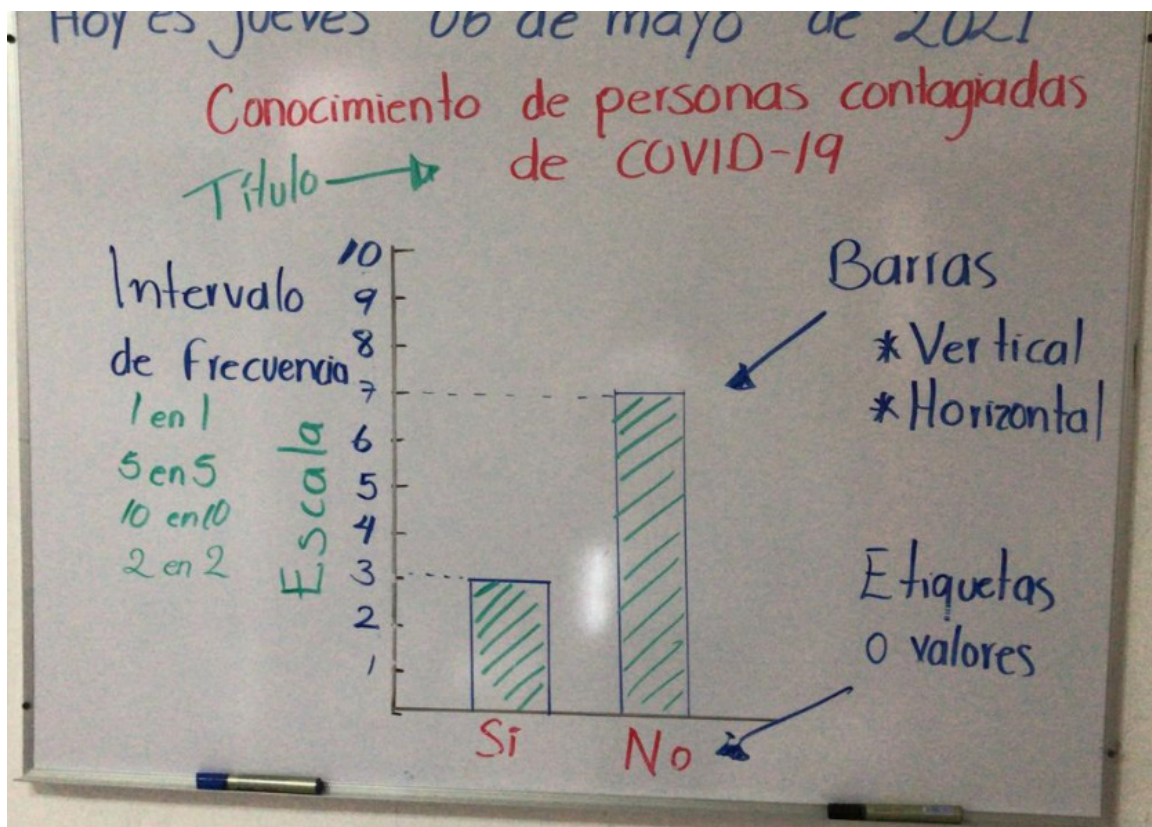 Hoy es jueves 06 de mayo de 2021
Conocimiento de personas contagiadas
de COVID-19
Título
Intervalo
de frecuencia
1 en 1
5 en 5
10 en 10
2 en 2
Escala
10
9
8
7
6
5
4
3
2
1
Si
No
Barras
*Vertical
*Horizontal
Etiquetas
o valores